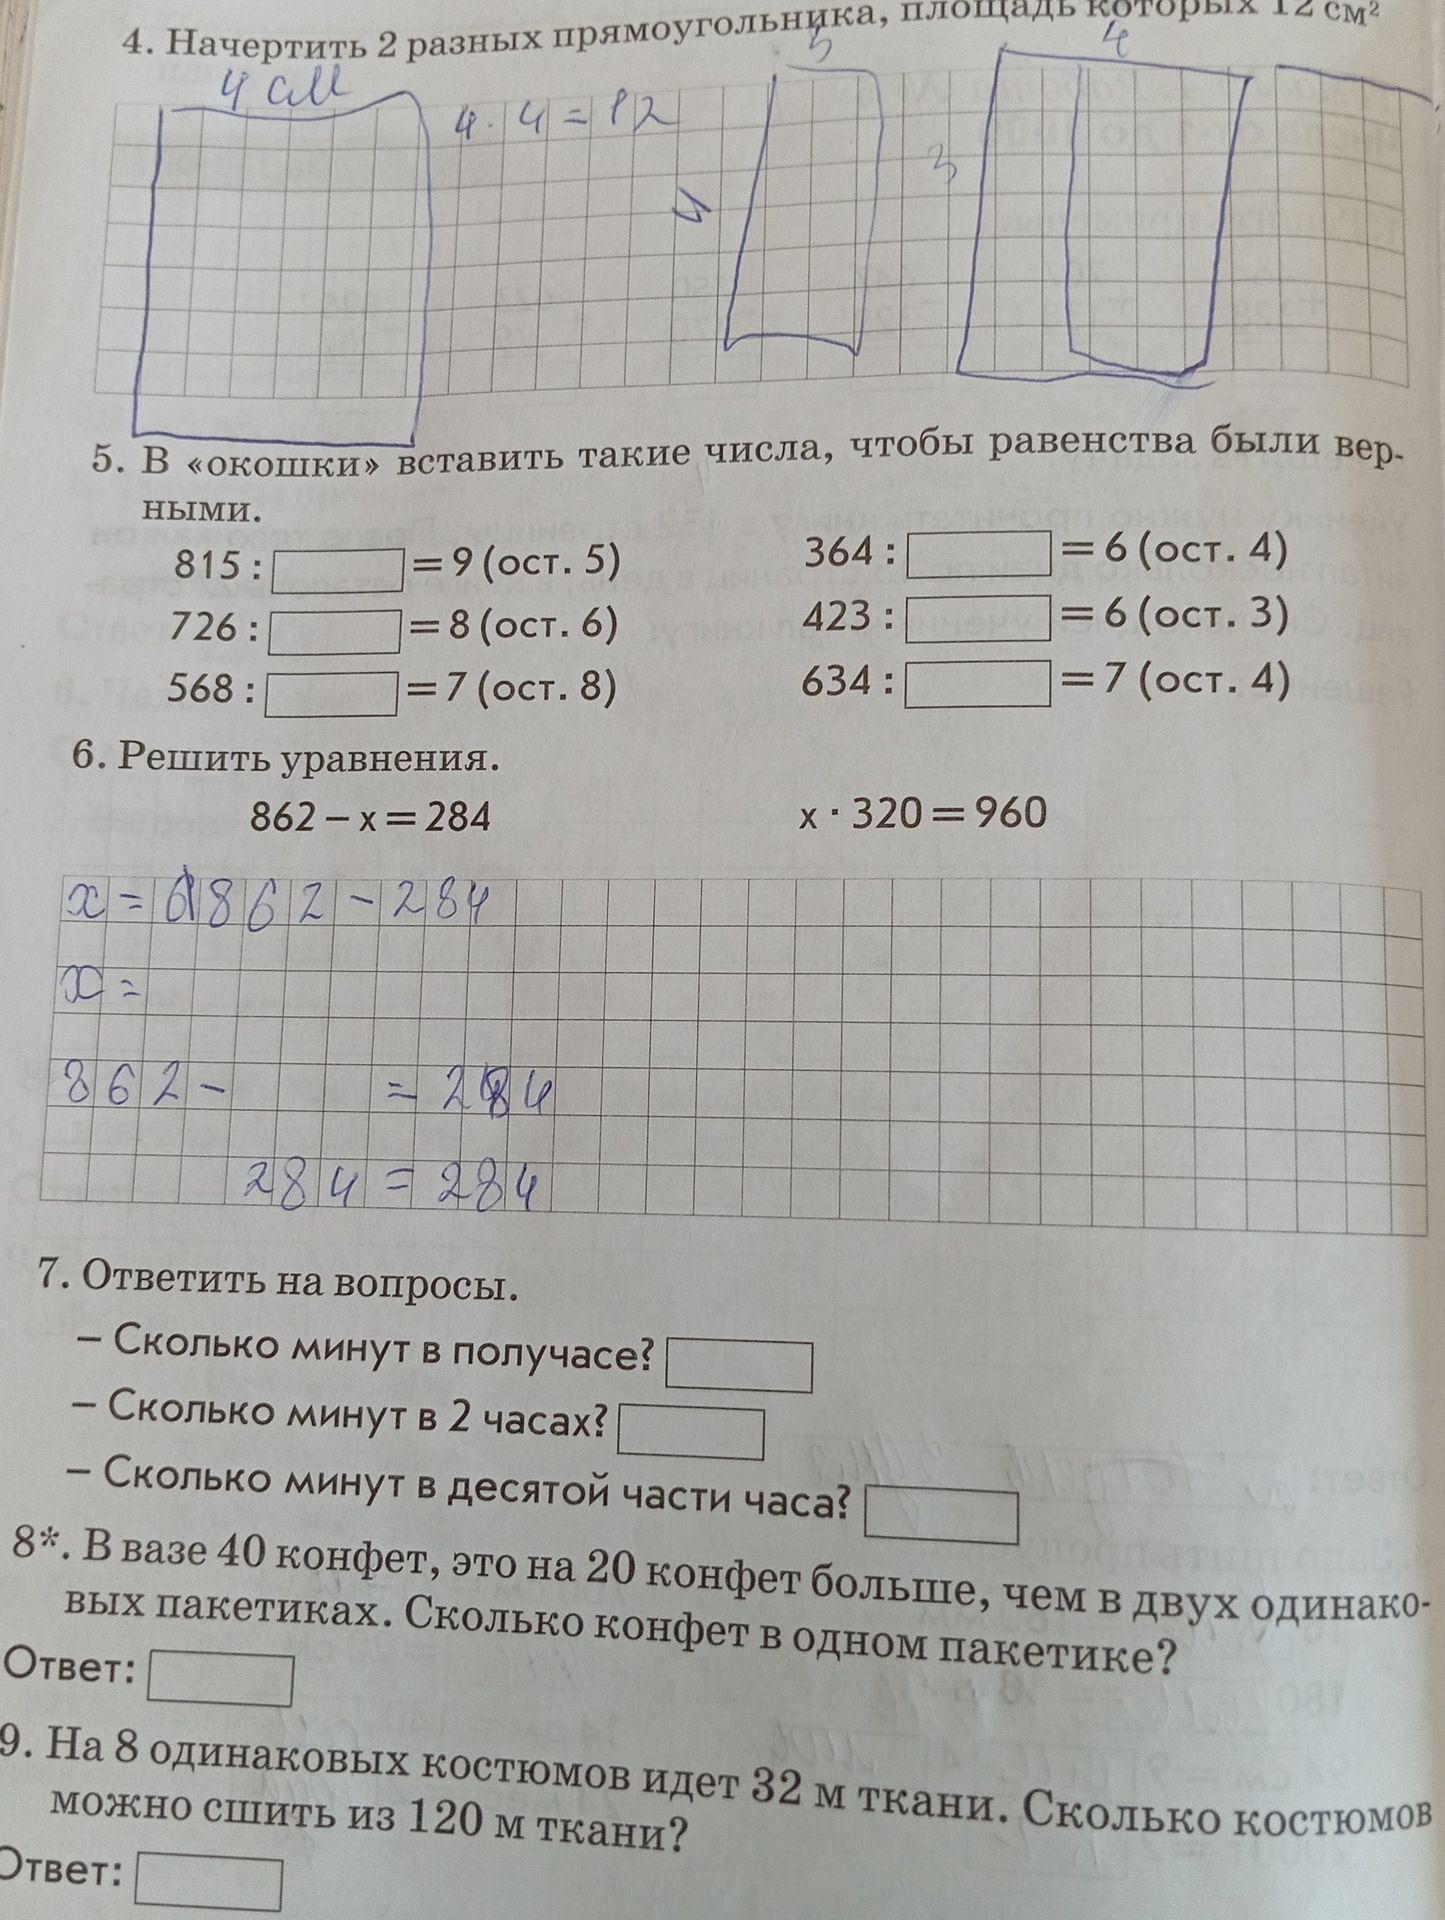 4. Начертить 2 разных прямоугольника, площадь которых 12 см²
4 см
4 · 4 = 12
3
4
4
3
5. В «окошки» вставить такие числа, чтобы равенства были вер-
ными.
815 : = 9 (ост. 5)
364 : = 6 (ост. 4)
726 : = 8 (ост. 6)
423 : = 6 (ост. 3)
568 : = 7 (ост. 8)
634 : = 7 (ост. 4)
6. Решить уравнения.
862 – х = 284
х · 320 = 960
х = 862 – 284
х =
862 – = 284
284 = 284
7. Ответить на вопросы.
– Сколько минут в получасе?
– Сколько минут в 2 часах?
– Сколько минут в десятой части часа?
8*. В вазе 40 конфет, это на 20 конфет больше, чем в двух одинако-
вых пакетиках. Сколько конфет в одном пакетике?
Ответ:
9. На 8 одинаковых костюмов идет 32 м ткани. Сколько костюмов
можно сшить из 120 м ткани?
Ответ: